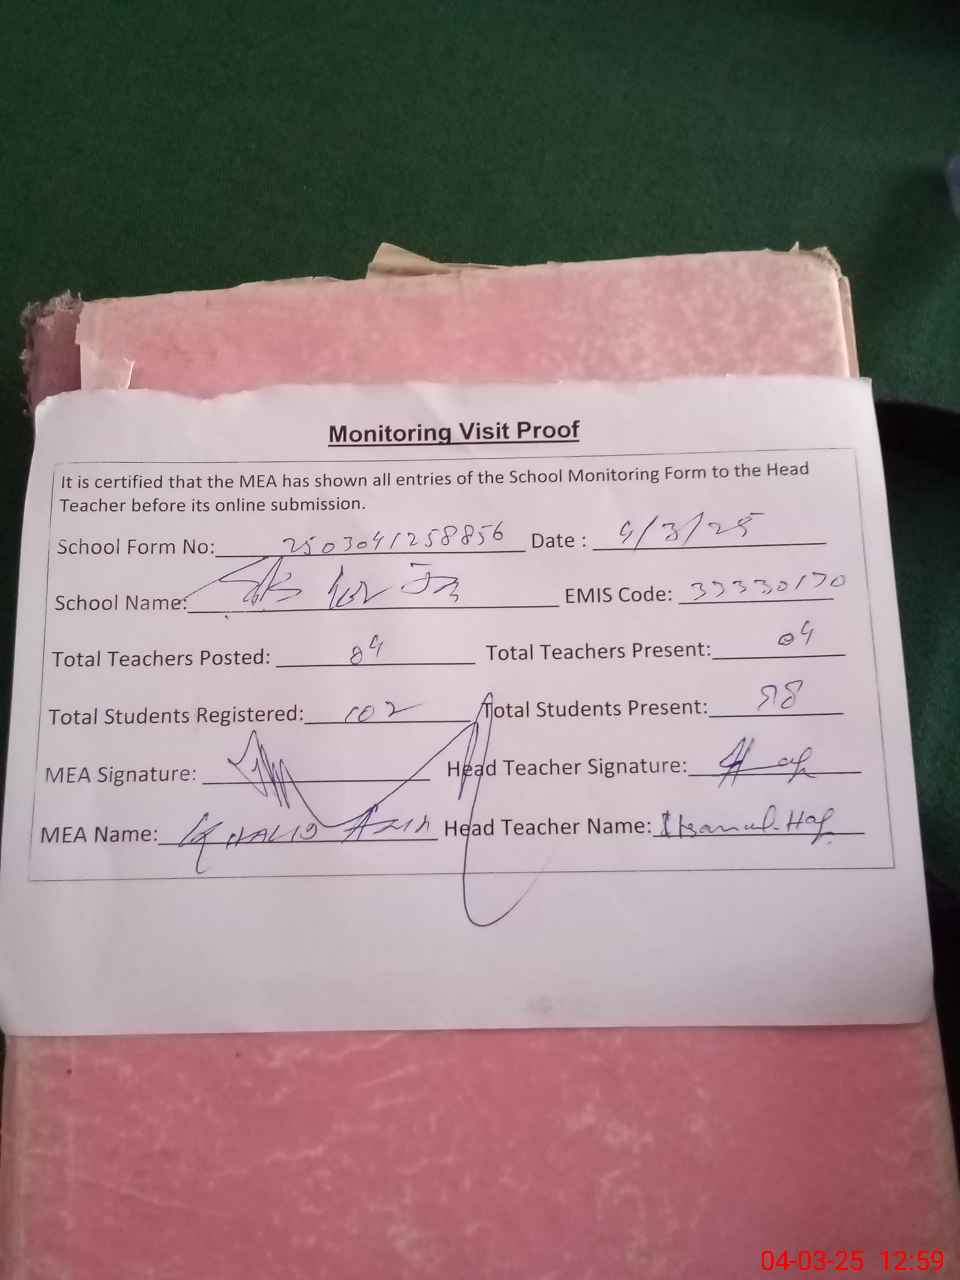 Monitoring Visit Proof
It is certified that the MEA has shown all entries of the School Monitoring Form to the Head
Teacher before its online submission.
School Form No: 2503041258856 Date : 4/3/25
School Name: EMIS Code: 33330170
Total Teachers Posted: 04 Total Teachers Present: 04
Total Students Registered: 102 Total Students Present: 88
MEA Signature: Head Teacher Signature:
MEA Name: KHALID Head Teacher Name: Ikram ul-Haq
04-03-25 12:59